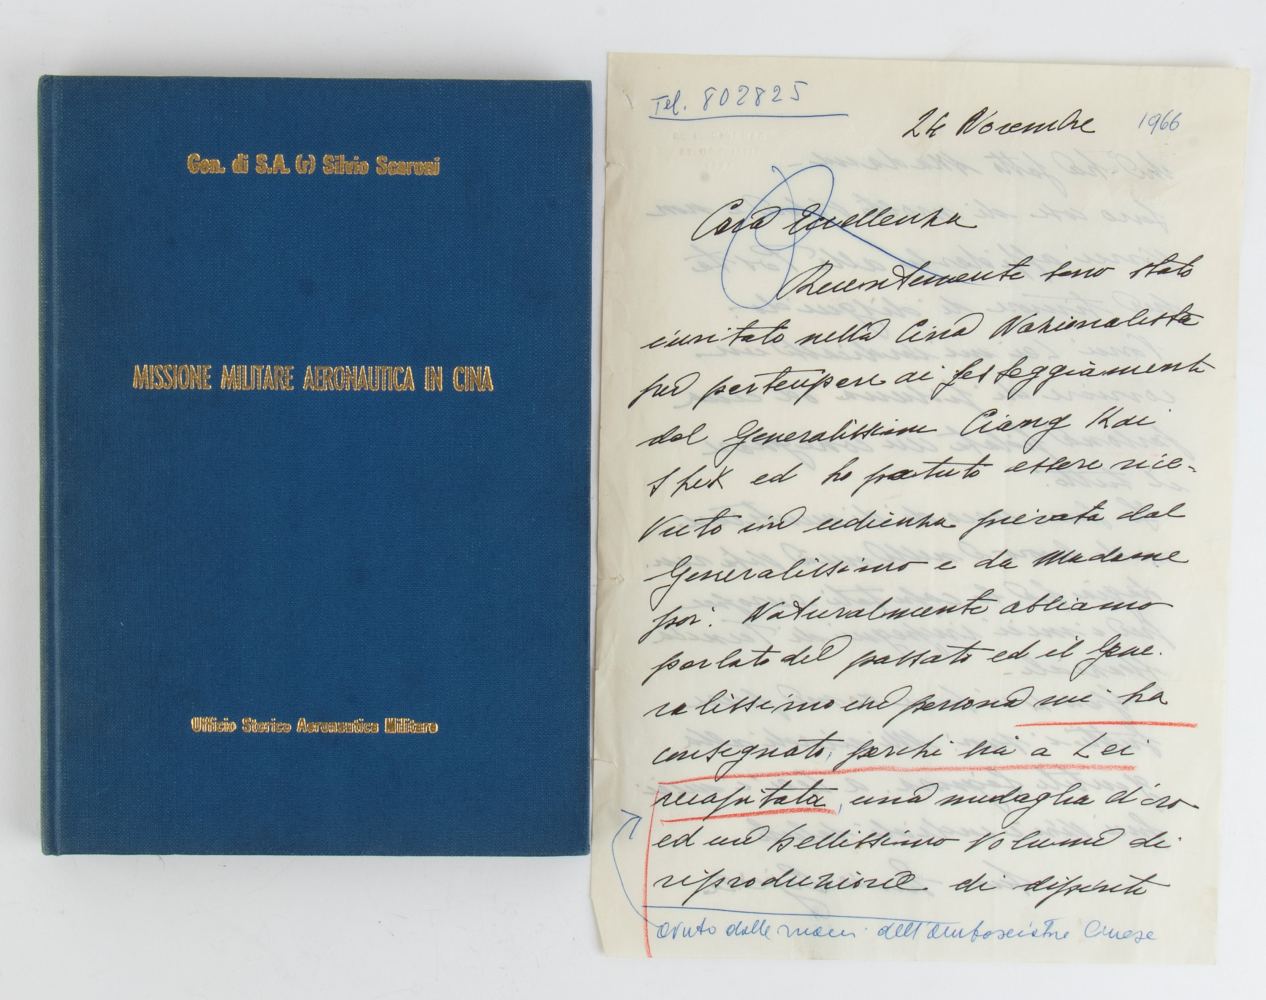 Gen. di S.A. (r) Silvio Scaroni
MISSIONE MILITARE AERONAUTICA IN CINA
Ufficio Storico Aeronautica Militare
Tel. 802825
24 Novembre 1966
Cara Eccellenza
Recentemente sono stato
invitato nella Cina Nazionalista
per partecipare ai festeggiamenti
del Generalissimo Ciang Kai
Shek ed ho potuto essere rice-
vuto in udienza privata dal
Generalissimo e da Madame
poi. Naturalmente abbiamo
parlato del passato ed il Gene-
ralissimo in persona mi ha
consegnato, perché sia a Lei
recapitata, una medaglia d'oro
ed un bellissimo volume di
riproduzione di dipinti
avuto dalle mani dell'Ambasciatore Cinese